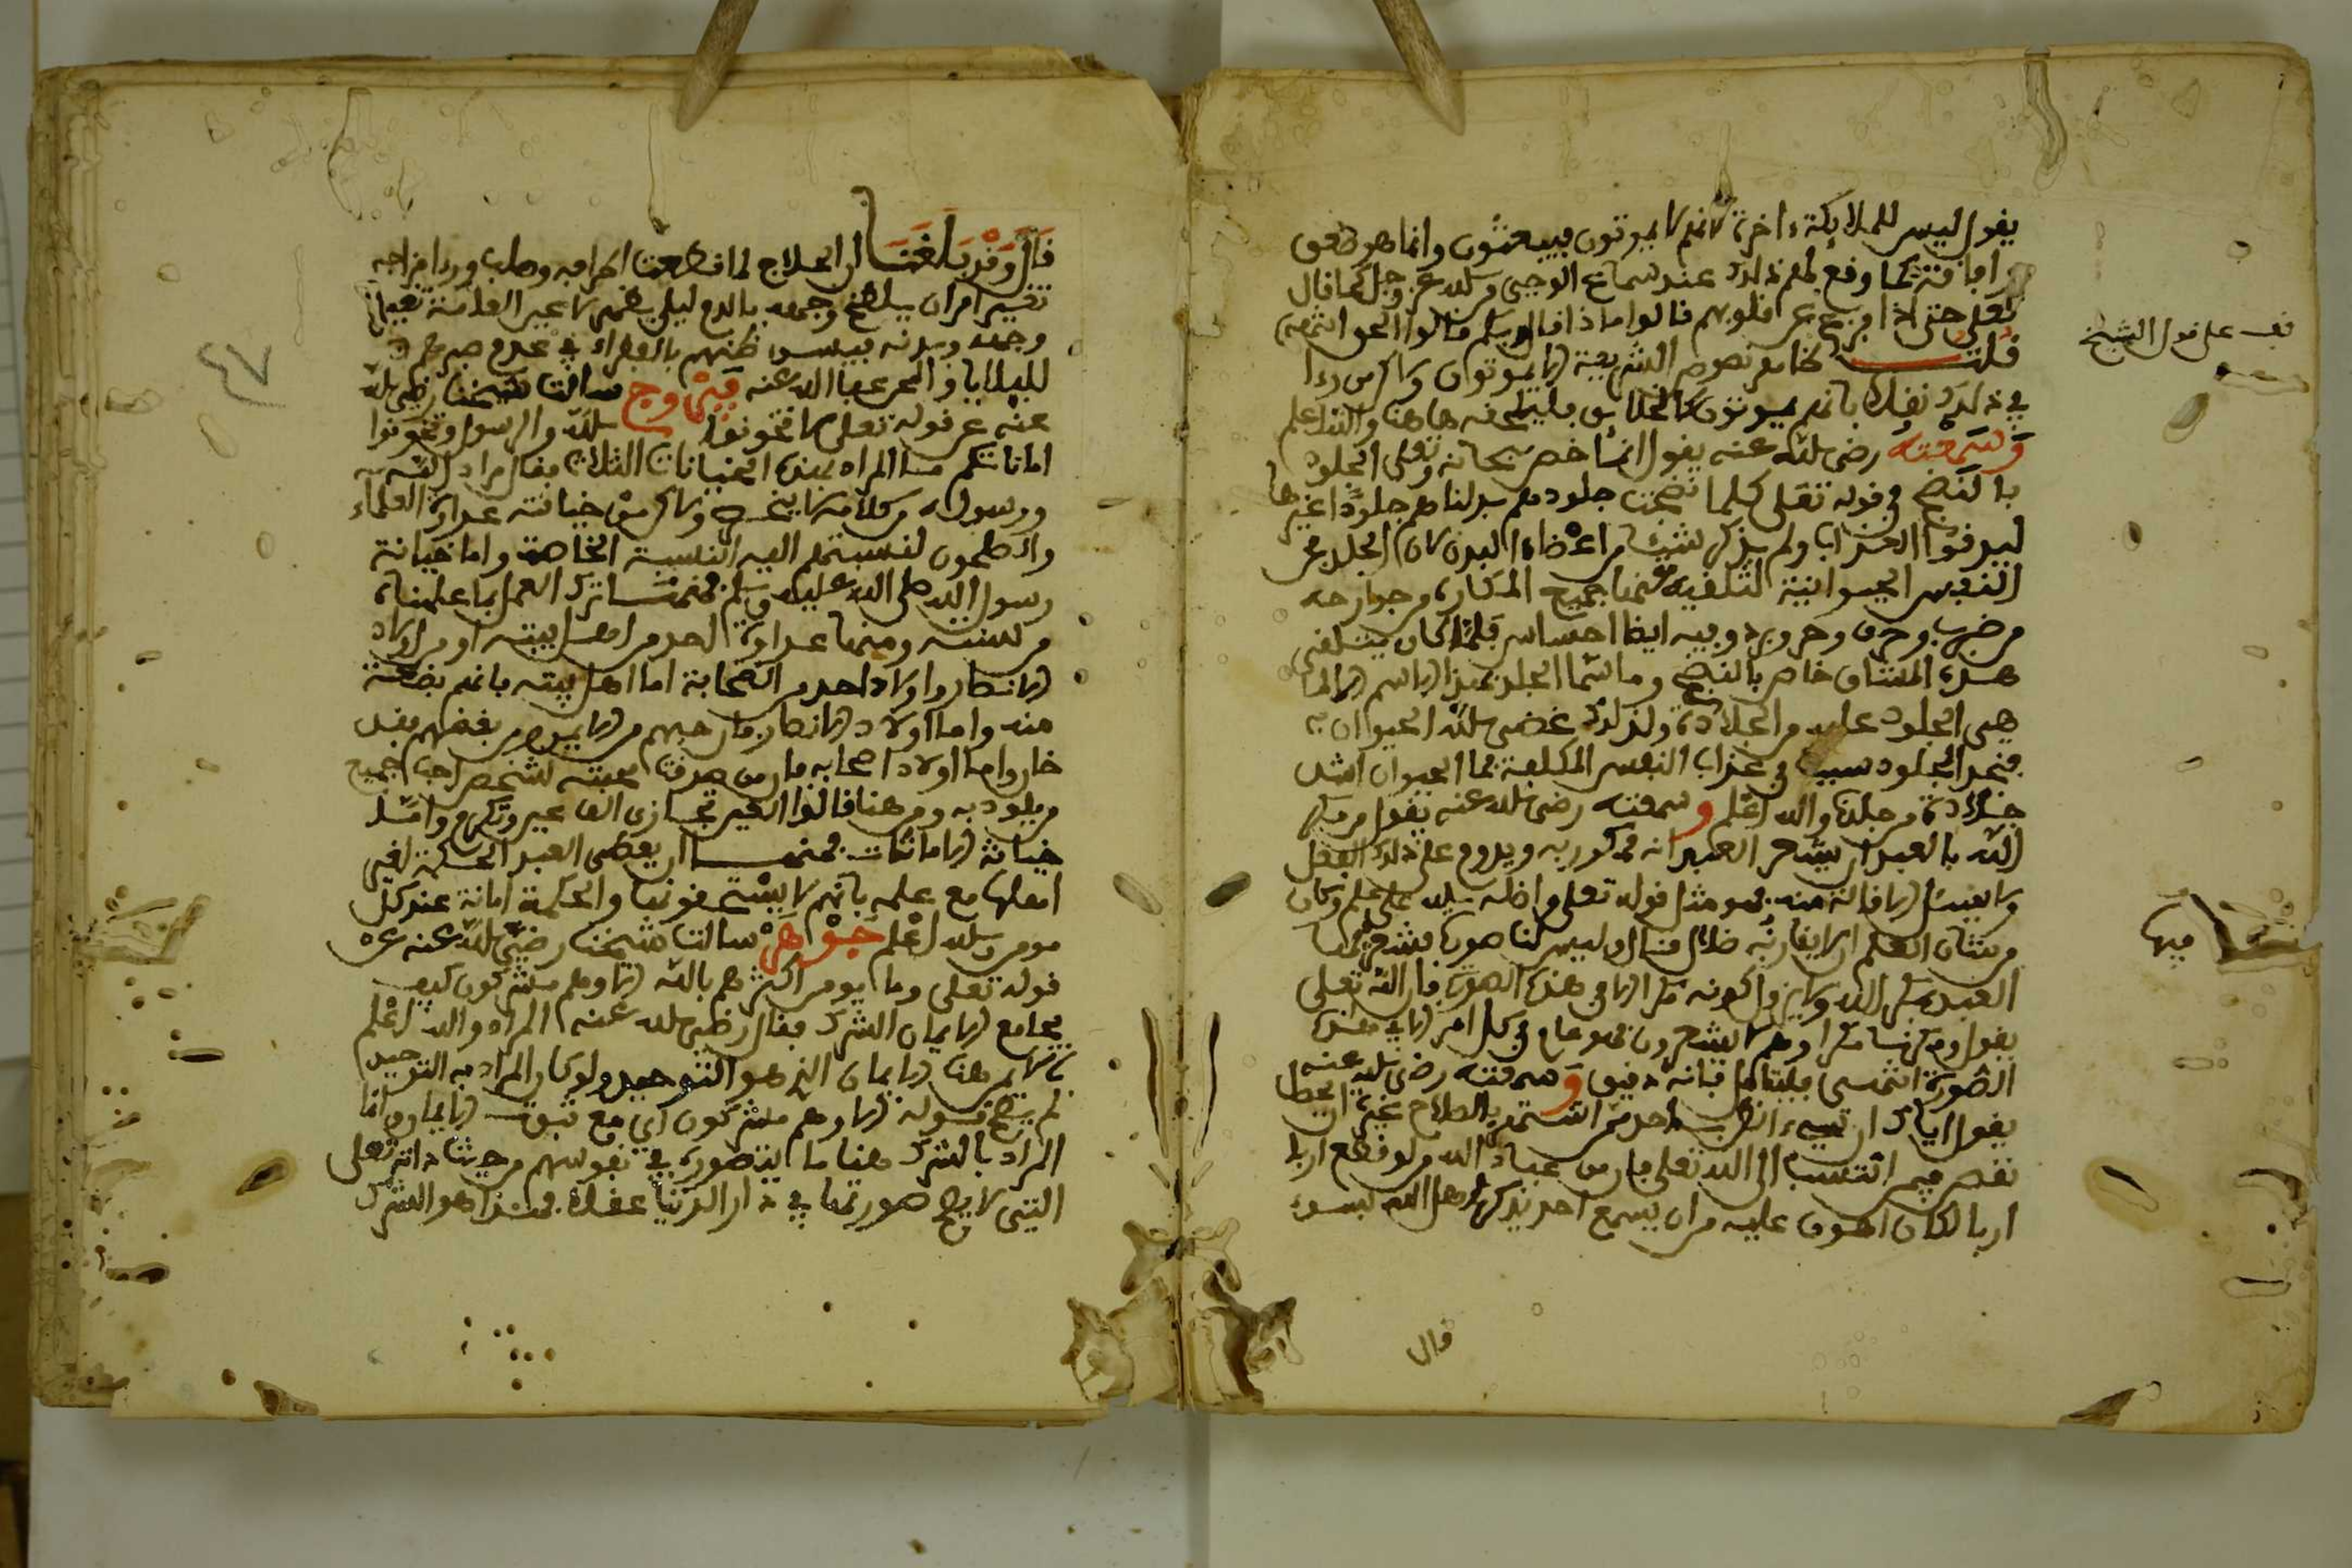 يقول ليس للملائكة ءاخرة لانهم لا يموتون فيبعثون وانما هو صعق
وافاقة كما وقع لهم ذلك عند سماع الوحي من الله عز وجل كما قال
تعلى حتى اذا فزع عن قلوبهم قالوا ماذا قال ربكم قالوا الحق انتهى
قلت ظاهر نصوص الشريعة انهم يموتون ولاكن من رءا
في ذلك نقلا بانهم يموتون كالخلايق فليلحقه هاهنا والله اعلم
وسمعته رضى الله عنه يقول انما خص سبحانه وتعلى الجلود
بالنضج في قوله تعلى كلما نضجت جلودهم بدلناهم جلودا غيرها
ليذوقوا العذاب ولم يذكر شيئا من اعضاء البدن لان الجلد محل
النفس الحيوانية لتلقيه عنها جميع المكاره وجوارحه
من ضرب وحرق وحر وبرد وفيه ايضا احساس فلما كان يتلقى
هذه المشاق خاص بالنضج وما سمى الجلد بهذا الاسم الا لما
هي الجلود عليه من الجلادة ولذلك غضى الله الحيوان به
فنجد الجلود سببا في عذاب النفس المكلفة فما الحيوان اشد
جلادة من جلده والله اعلم وسمعته رضى الله عنه يقول من مكر
الله بالعبد ان يشعر العبد انه ممكور به ويدوم على ذلك الفعل
ولا يسئل الاقالة منه فهو مثل قوله تعلى واضله الله على علم وكان
من شان العلم ان لا يقارنه ضلال فقال ليس لنا صورة يشعر فيها
العبد بمكر الله ولا يزول كونه مكرا الا في هذه الصورة قال الله تعلى
يقول ومكرنا مكرا وهم لا يشعرون فهو عام في كل امر الا في هذه
الصورة انتهى فليتامل فانه دقيق وسمعته رضى الله عنه
يقول اياك ان تسيء الظن باحد ممن اشتهر بالصلاح غيره ان يحط
نقص فيمن انتسب الى الله تعلى فان من عباد الله من لو قطع اربا
اربا لكان اهون عليه من ان يسمع احد يذكر اهل الله بسوء
قال
قف على قول الشيخ
فيها
قال وقد بلغنا ان الحلاج لما قطعت اطرافه وصلب ورءا مزاجه
تغير امر ان يلطخ وجهه بالدم ليلا يظهر لاعين العامة تغير
وجهه وبدنه فيسوء ظنهم بالفقراء في عدم صبرهم
للبلايا والمحن عفا الله عنه فيروزج سالت شيخنا رضى الله
عنه عن قوله تعلى لا تخونوا الله والرسول وتخونوا
اماناتكم ما المراد بهذه الخيانات الثلاث فقال مراد الله
ورسوله من كلامه لا ينحصر ولاكن من خيانته عداوة العلماء
والصالحون لنسبتهم اليه النسبة الخاصة واما خيانة
رسول الله صلى الله عليه وسلم فمنها ترك العمل بما علمناه
من سنته ومنها عداوة احد من اهل بيته او من اولاد
الانصار واولاد احد من الصحابة اما اهل بيته فانهم بضعة
منه واما اولاد الانصار فان حبهم من الايمان ومن بغضهم فقد
خان واما اولاد اصحابه فان من صدقت محبته لشخص احب جميع
من يلوذ به ومن هنا قالوا العين تجازى الف عين وتكرم واما
خيانة الامانات فمنها ان يعطى العبد الحكمة لغير
اهلها مع علمه بانهم لا يستحقونها والحكمة امانة عند كل
مومن والله اعلم جوهر سالت شيخنا رضى الله عنه عن
قوله تعلى وما يومن اكثرهم بالله الا وهم مشركون كيف
يجامع الايمان الشرك فقال رضى الله عنه المراد والله اعلم
بالايمان هنا الايمان الذي هو التوحيد ولو كان المراد به التوحيد
لم يصح قوله الا وهم مشركون اي مع ثبوت الايمان وانما
المراد بالشرك هنا ما يتصوره في نفوسهم من حيث ذاته تعلى
التي لا يصح صورتها في دار الدنيا عقلا فهذا هو الشرك
٤٧